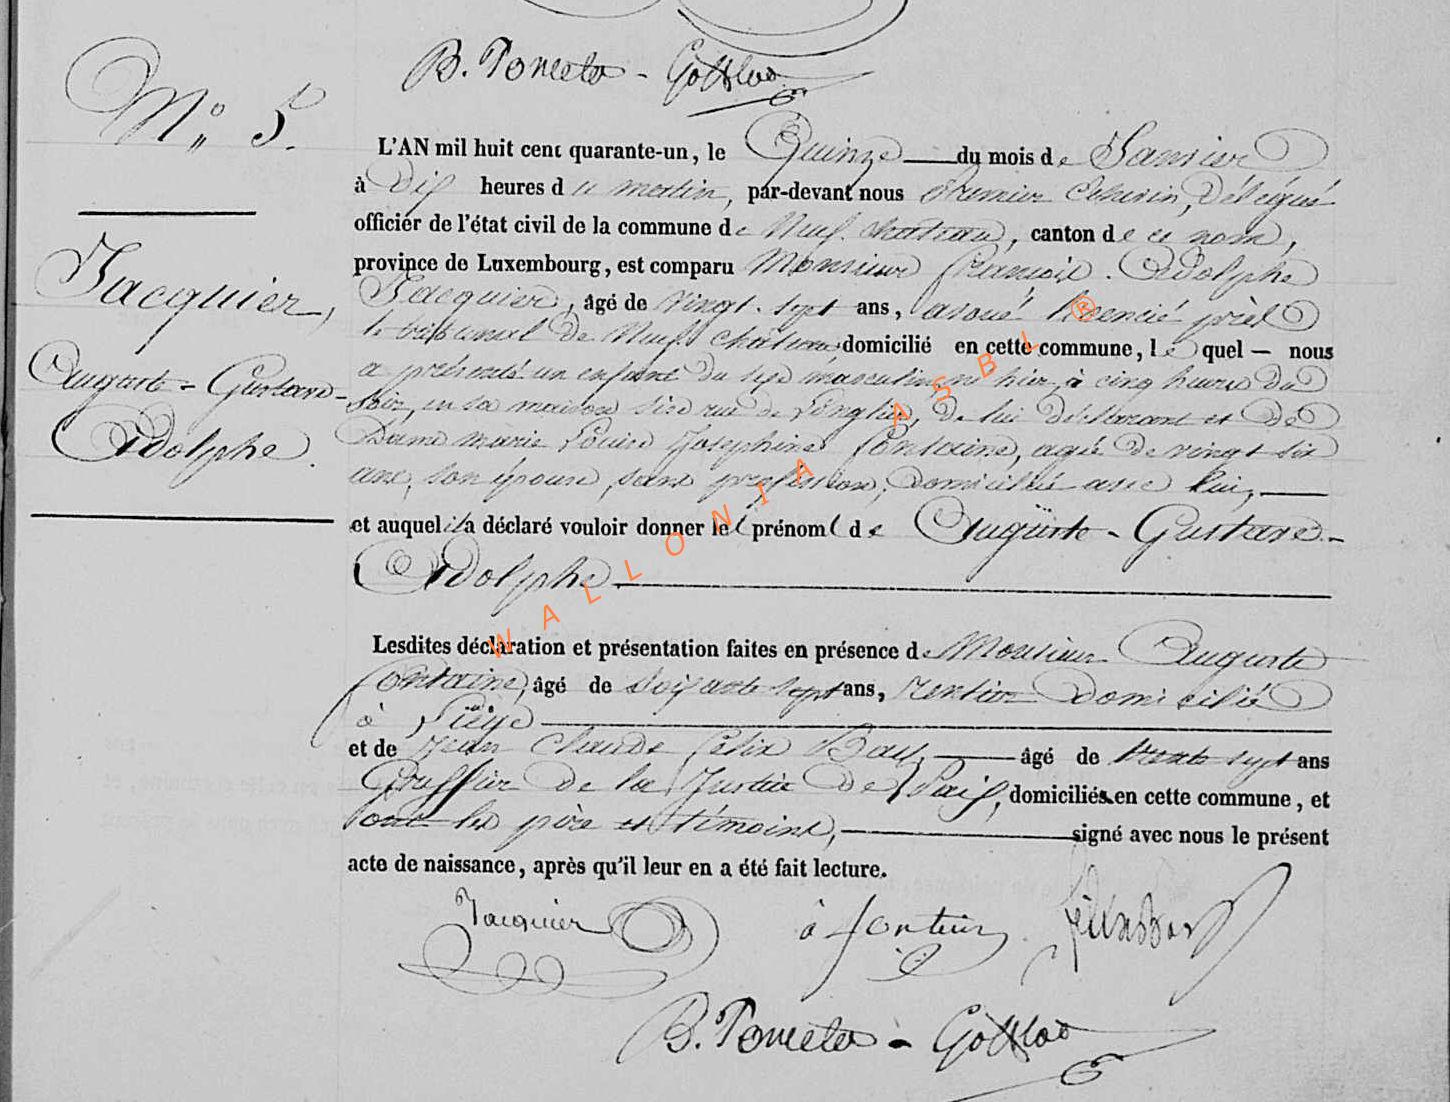 B. Poncelet - Gofflot
N° 5.
L'AN mil huit cent quarante-un, le Quinze du mois de Janvier
à dix heures du matin, par-devant nous Premier Echevin, Délégué
officier de l'état civil de la commune de Neufchateau, canton de ce nom,
province de Luxembourg, est comparu Monsieur François Adolphe
Jacquier, âgé de vingt-sept ans, avoué licencié près
le tribunal de Neufchateau, domicilié en cette commune, lequel nous
a présenté un enfant du sexe masculin, né hier, à cinq heures du
soir, en sa maison sise rue de l'Eglise, de lui déclarant et de
Dame Marie Louise Josephine Fontaine, agée de vingt six
ans, son épouse, sans profession, domiciliée avec lui,
et auquel il a déclaré vouloir donner les prénoms de Auguste - Gustave -
Adolphe
Jacquier,
Auguste - Gustave -
Adolphe.
Lesdites déclaration et présentation faites en présence de Monsieur Auguste
Fontaine, âgé de soixante sept ans, rentier domicilié
à Liège
et de Jean Claude Félix âgé de trente sept ans
Greffier de la Justice de Paix, domiciliés en cette commune, et
ont les père et témoins, signé avec nous le présent
acte de naissance, après qu'il leur en a été fait lecture.
Jacquier
B. Poncelet - Gofflot
WALLONIA ASBL ®